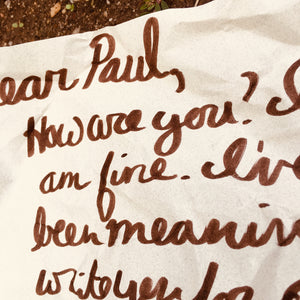 ear Paul,
How are you? I
am fine. I've
been meanin
write you for a